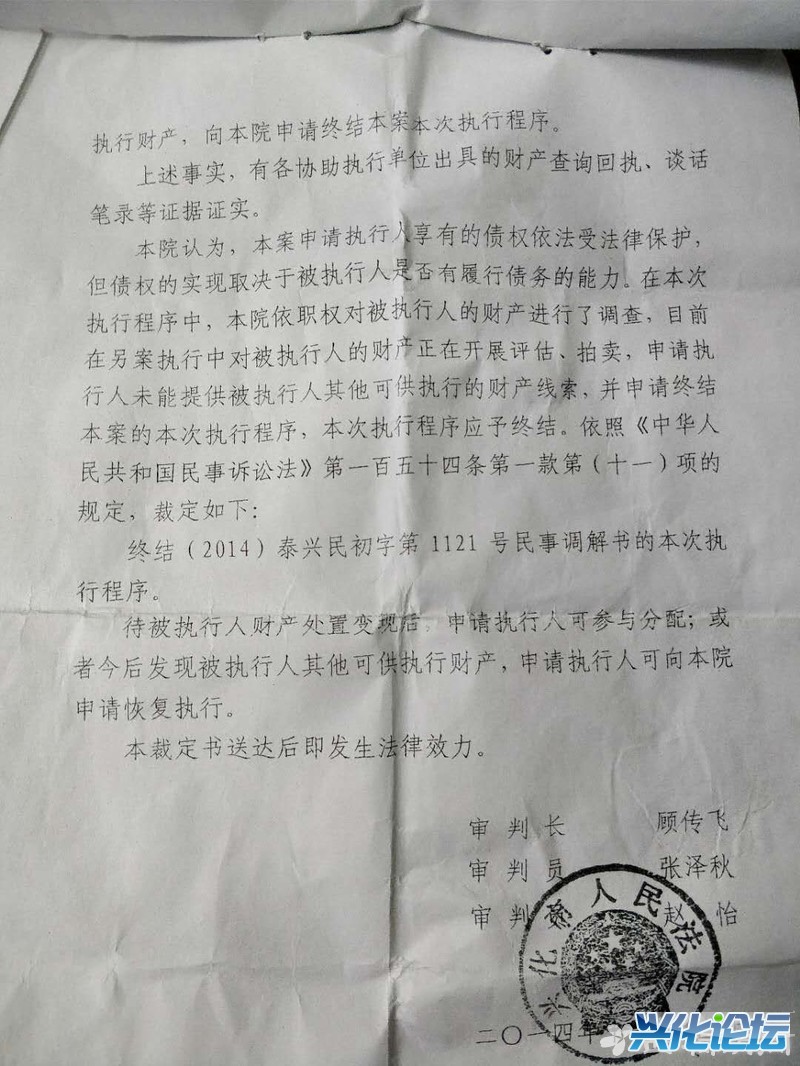 执行财产，向本院申请终结本案本次执行程序。
上述事实，有各协助执行单位出具的财产查询回执、谈话
笔录等证据证实。
本院认为，本案申请执行人享有的债权依法受法律保护，
但债权的实现取决于被执行人是否有履行债务的能力。在本次
执行程序中，本院依职权对被执行人的财产进行了调查，目前
在另案执行中对被执行人的财产正在开展评估、拍卖，申请执
行人未能提供被执行人其他可供执行的财产线索，并申请终结
本案的本次执行程序，本次执行程序应予终结。依照《中华人
民共和国民事诉讼法》第一百五十四条第一款第（十一）项的
规定，裁定如下：
终结（2014）泰兴民初字第1121号民事调解书的本次执
行程序。
待被执行人财产处置变现后，申请执行人可参与分配；或
者今后发现被执行人其他可供执行财产，申请执行人可向本院
申请恢复执行。
本裁定书送达后即发生法律效力。
审判长 顾传飞
审判员 张泽秋
审判员 赵怡
兴化市人民法院
二〇一四年
兴化论坛